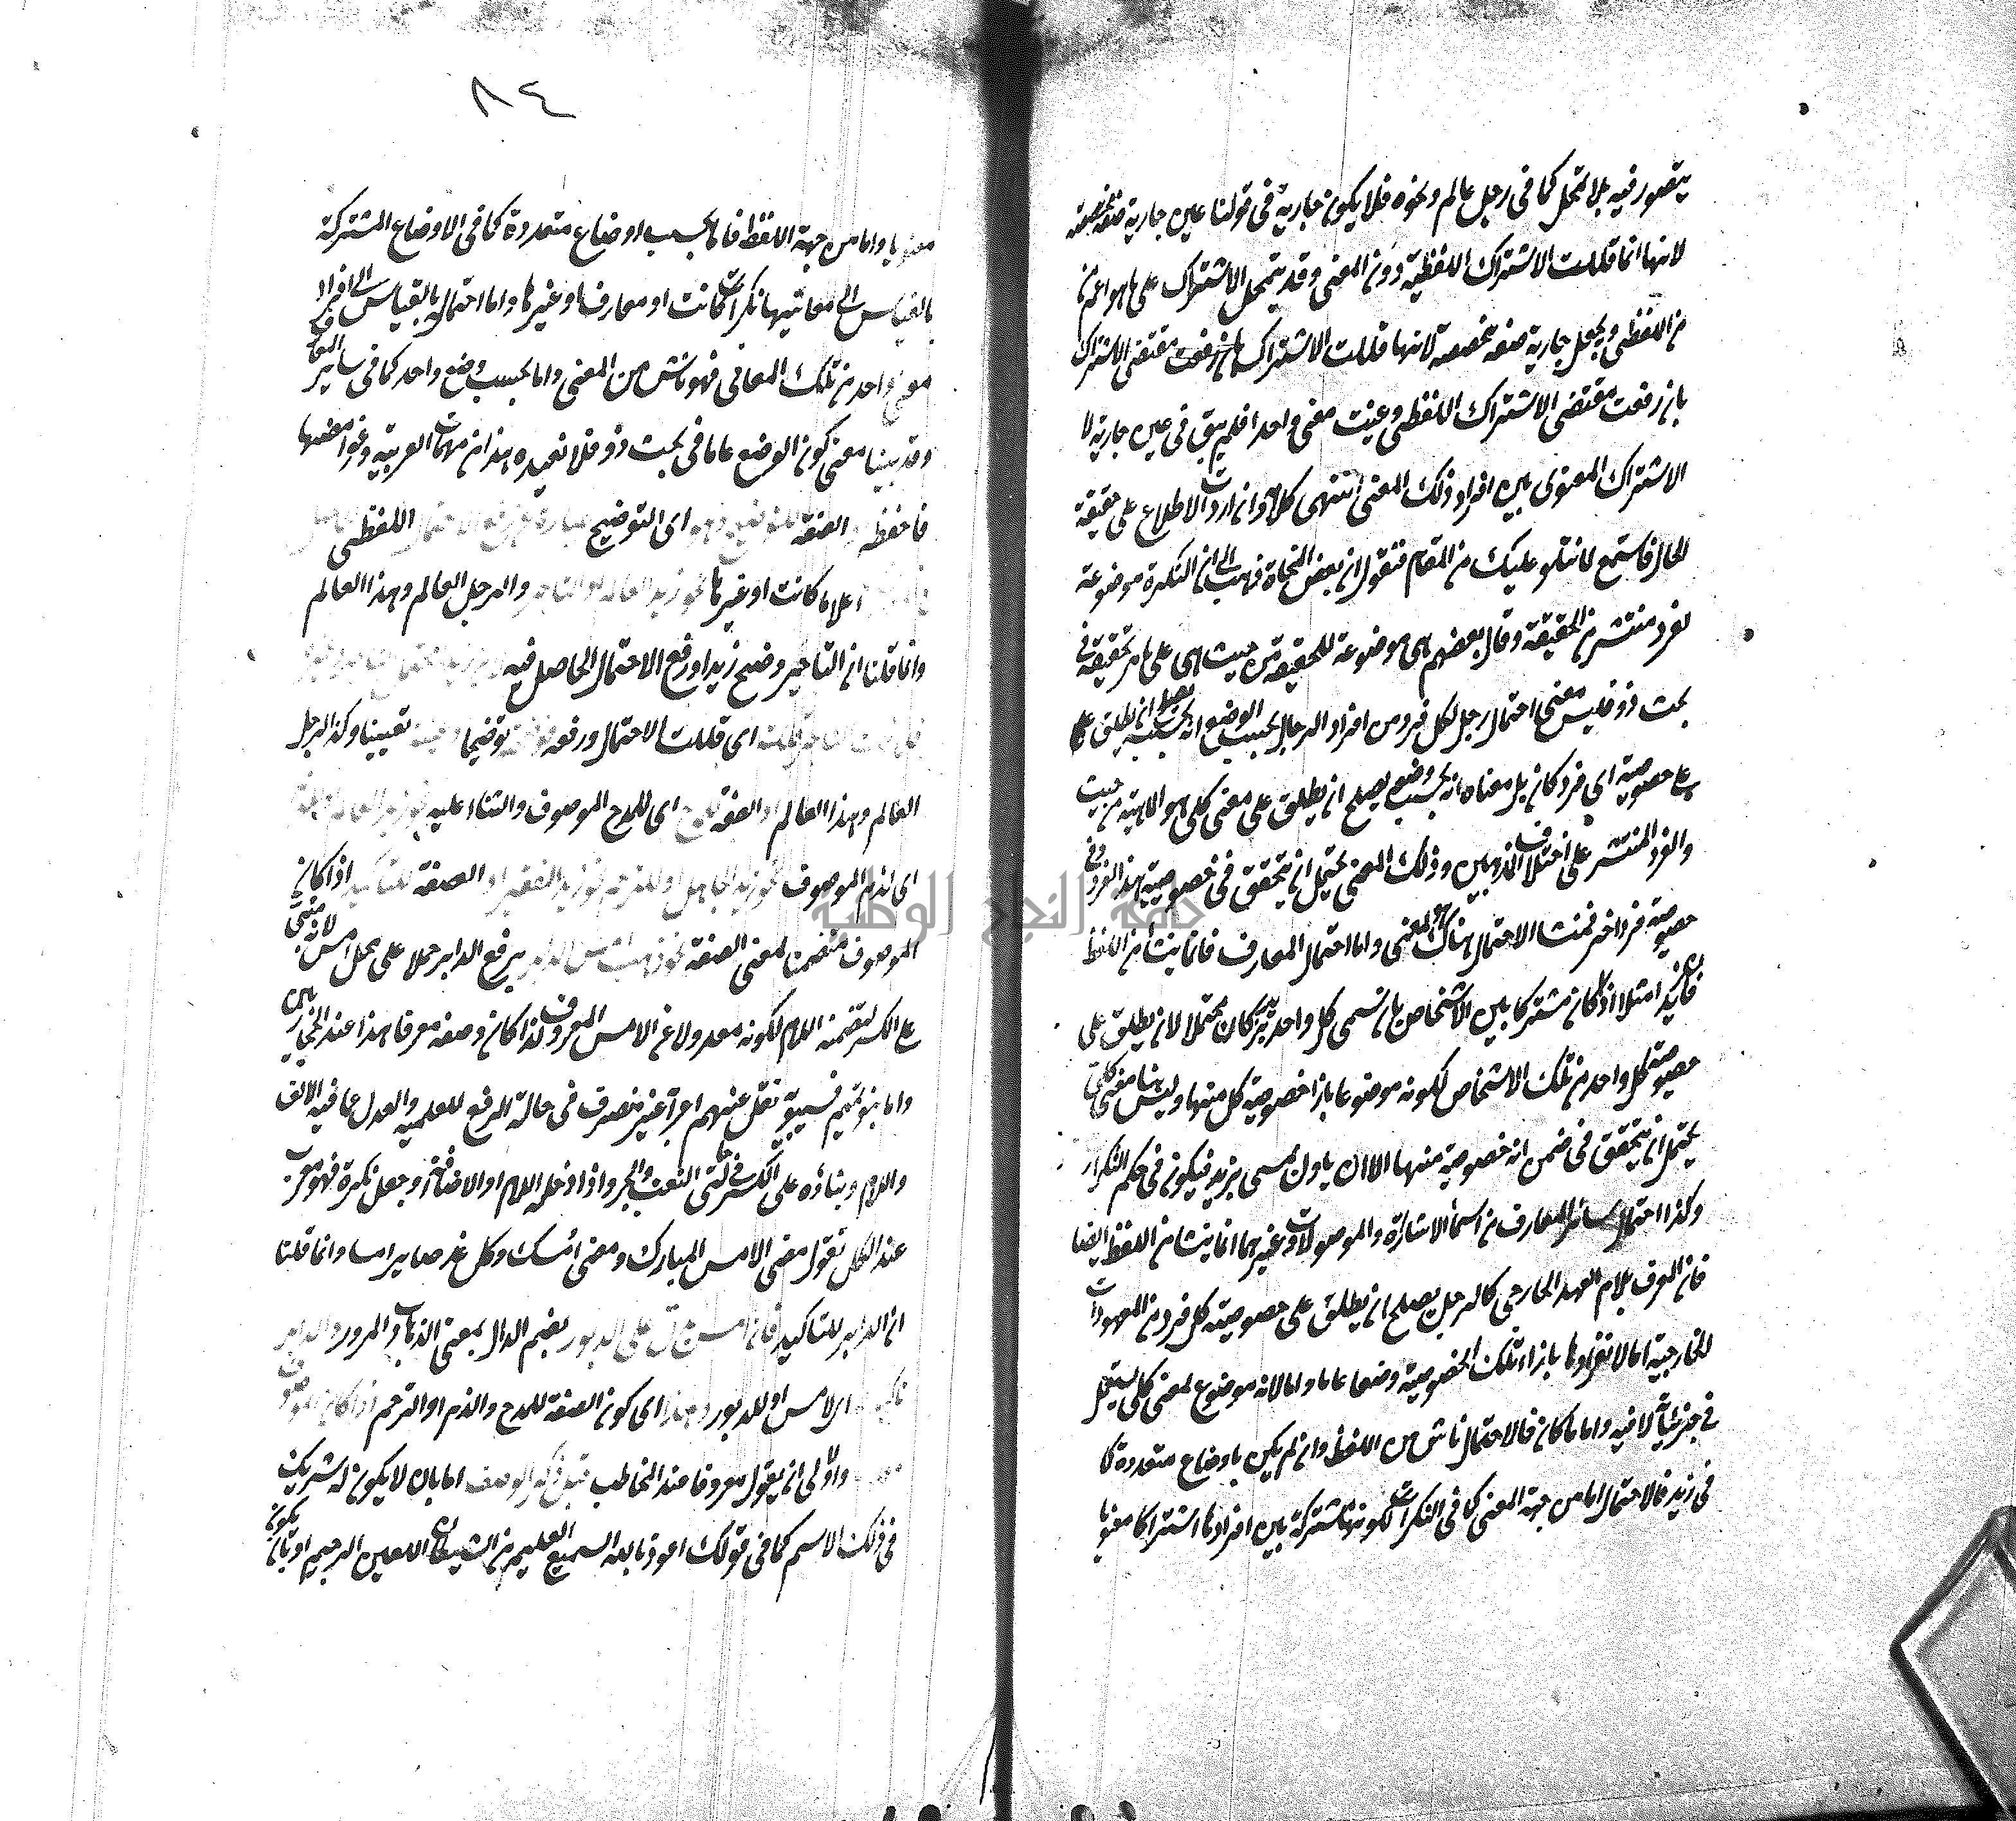 يتصور فيه بلا تمحل كما في رجل عالم ونحوه فلا يكون جارية في قولنا عين جارية صفة مخصصة
لانها انما قللت الاشتراك اللفظية دون المعنى وقد يتمحل الاشتراك على ما هو اعم من
من اللفظي ويجعل جارية صفة مخصصة لانها قللت الاشتراك بان رفعت مقتضى الاشتراك
بان رفعت مقتضى الاشتراك اللفظي وعينت معنى واحدا فلم يبق في عين جارية الا
الاشتراك المعنوي بين افراد ذلك المعنى انتهى كلامه وان اردت الاطلاع على حقيقة
الحال فاستمع لما نتلو عليك من المقام فنقول ان بعض النحاة ذهب الى ان النكرة موضوعة
لفرد منتشر من الحقيقة وقال بعضهم هي موضوعة للحقيقة من حيث هي على ما مر تحقيقه في
بحث ذو فليس معنى احتمال رجل لكل فرد من افراد الرجال بحسب الوضع انه بحسبه يصلح ان يطلق على
على خصوصية اي فرد كان بل معناه انه بحسب وضعه يصلح ان يطلق على معنى كلي هو الماهية من حيث
والفرد المنتشر على اختلاف المذهبين وذلك المعنى يحتمل ان يتحقق في خصوصية هذا الفرد وفي
خصوصية فرد اخر فمنشا الاحتمال هناك هو المعنى واما احتمال المعارف فانما ينشأ من اللفظ
فان زيد امثلا اذا كان مشتركا بين الاشخاص بان تسمى كل واحد بزيد كان محتملا لان يطلق على
خصوصية كل واحد من تلك الاشخاص لكونه موضوعا بازاء خصوصية كل منها وليس هنا معنى كلي
يحتمل ان يتحقق في ضمن اية خصوصية منها الا ان ياول بمسمى بزيد فيكون في حكم النكرات
وكذا احتمال سائر المعارف من اسماء الاشارة والموصولات وغيرهما انما ينشا من اللفظ ايضا
فان المعرف بلام العهد الخارجي كالرجل يصلح ان يطلق على خصوصية كل فرد من المعهودات
الخارجية اما لانفرادها بازاء تلك الخصوصية وضعا عاما واما لانه موضوع لمعنى كلي ليستعمل
في جزئياته لا فيه واما ما كان فالاحتمال ناش من اللفظ وان لم يكن باوضاع متعددة كما
في زيد فالاحتمال اما من جهة المعنى كما في النكرات لكونها مشتركة بين افرادها اشتراكا معنويا
٨٤
معنويا واما من جهة اللفظ فاما بحسب اوضاع متعددة كما في الاوضاع المشتركة
بالقياس الى معانيها نكرات كانت او معارف او غيرها واما احتمالها بالقياس الى افراد
معنى واحد من تلك المعاني فهو ناش من المعنى واما بحسب وضع واحد كما في ساير المعارف
وقد بينا معنى كون الوضع عاما في بحث ذو فلا نعيده هذا من مهمات العربية وغوامضها
فاحفظه الصفة اي التوضيح اللفظي
اعلاما كانت او غيرها نحو زيد العالم او التاجر والرجل العالم وهذا العالم
وانما قلنا ان التاجر وضح زيدا ورفع الاحتمال الحاصل فيه
اي قللت الاحتمال ورفعه توضيحا تعيينا وكذا الرجل
العالم وهذا العالم الصفة اي للمدح الموصوف والثناء عليه
اي لذم الموصوف نحو زيد الجاهل او للترحم نحو زيد الفقير او الصفة للتاكيد اذا كان
الموصوف متضمنا لمعنى الصفة نحو ذهب امس الدابر يرفع الدابر حملا على محل امس لانه مبني
على الكسر لتضمنه اللام لكونه معدولا عن الامس المعروف لذا كان وصفه معرفا هذا عند الحجازيين
واما بنو تميم فسيبويه نقل عنهم اجراءه غير منصرف في حالة الرفع للعلمية والعدل عما فيه الالف
واللام وبناؤه على الكسر في حالتي النصب والجر واذا دخله اللام او الاضافة او جعل نكرة فهو معرب
عند الكل تقول مضى الامس المبارك ومضى امسك وكل غد صاير امسا وانما قلنا
ان الدابر للتاكيد فان امس على الدبور بضم الدال بمعنى الذهاب والمرور والدابر
لامس او للدبور وهذا اي كون الصفة للمدح والذم او الترحم اذا كان الموصوف
والاولى ان يقول معروفا عند المخاطب قبل ذكر الوصف اما بان لا يكون له شريك
في ذلك الاسم كما في قولك اعوذ بالله السميع العليم من الشيطان اللعين الرجيم او بان يكون
جامعة النجاح الوطنية